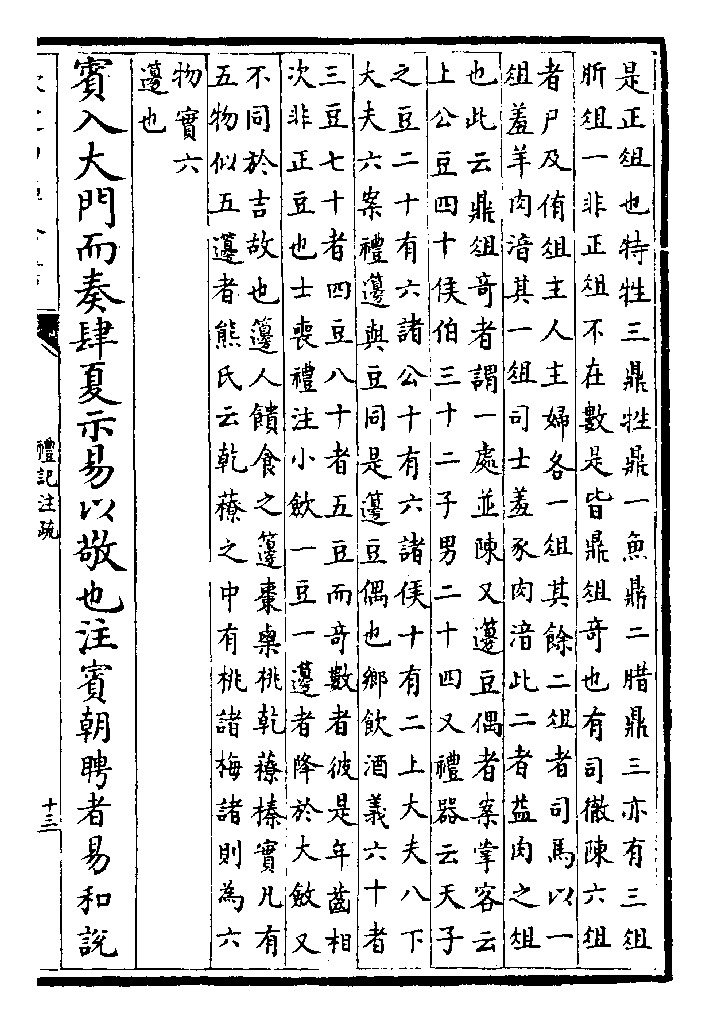 是正俎也特牲三鼎牲鼎一魚鼎二腊鼎三亦有三俎
肵俎一非正俎不在數是皆鼎俎奇也有司徹陳六俎
者尸及侑俎主人主婦各一俎其餘二俎者司馬以一
俎羞羊肉湆其一俎司士羞豕肉湆此二者益肉之俎
也此云鼎俎奇者謂一處並陳又籩豆偶者案掌客云
上公豆四十侯伯三十二子男二十四又禮器云天子
之豆二十有六諸公十有六諸侯十有二上大夫八下
大夫六案禮籩與豆同是籩豆偶也鄉飲酒義六十者
三豆七十者四豆八十者五豆而奇數者彼是年齒相
次非正豆也士喪禮注小斂一豆一籩者降於大斂又
不同於吉故也籩人饋食之籩棗㮚桃乾䕩榛實凡有
五物似五籩者熊氏云乾䕩之中有桃諸梅諸則為六
物實六
籩也
賓入大門而奏肆夏示易以敬也注賓朝聘者易和說
禮記注疏
十三